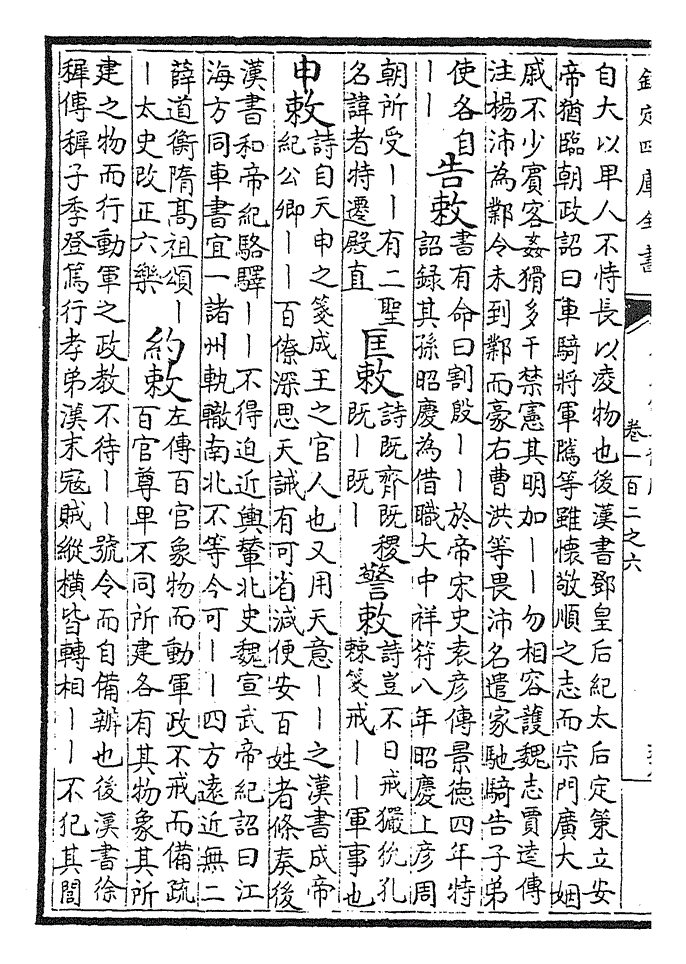 欽定四庫全書
卷一百二之六
自大以卑人不恃長以凌物也後漢書鄧皇后紀太后定策立安
帝猶臨朝政詔曰車騎將軍隲等雖懷敬順之志而宗門廣大姻
戚不少賓客姦猾多干禁憲其明加――勿相容護魏志賈逵傳
注楊沛為鄴令未到鄴而豪右曹洪等畏沛名遣家馳騎告子弟
使各自
――
告敕
書有命曰割殷――於帝宋史袁彦傳景德四年特
詔録其孫昭慶為借職大中祥符八年昭慶上彦周
朝所受――有二聖
名諱者特遷殿直
匡敕
詩既齊既稷
既―既―
警敕
詩豈不日戒玁狁孔
棘箋戒――軍事也
申敕
詩自天申之箋成王之官人也又用天意――之漢書成帝
紀公卿――百僚深思天誡有可省減便安百姓者條奏後
漢書和帝紀駱驛――不得迫近輿輦北史魏宣武帝紀詔曰江
海方同車書宜一諸州軌轍南北不等今可――四方遠近無二
薛道衡隋髙祖頌―
―太史改正六樂
約敕
左傳百官象物而動軍政不戒而備疏
百官尊卑不同所建各有其物象其所
建之物而行動軍之政教不待――號令而自備辦也後漢書徐
穉傳穉子季登篤行孝弟漢末寇賊縱横皆轉相――不犯其閭